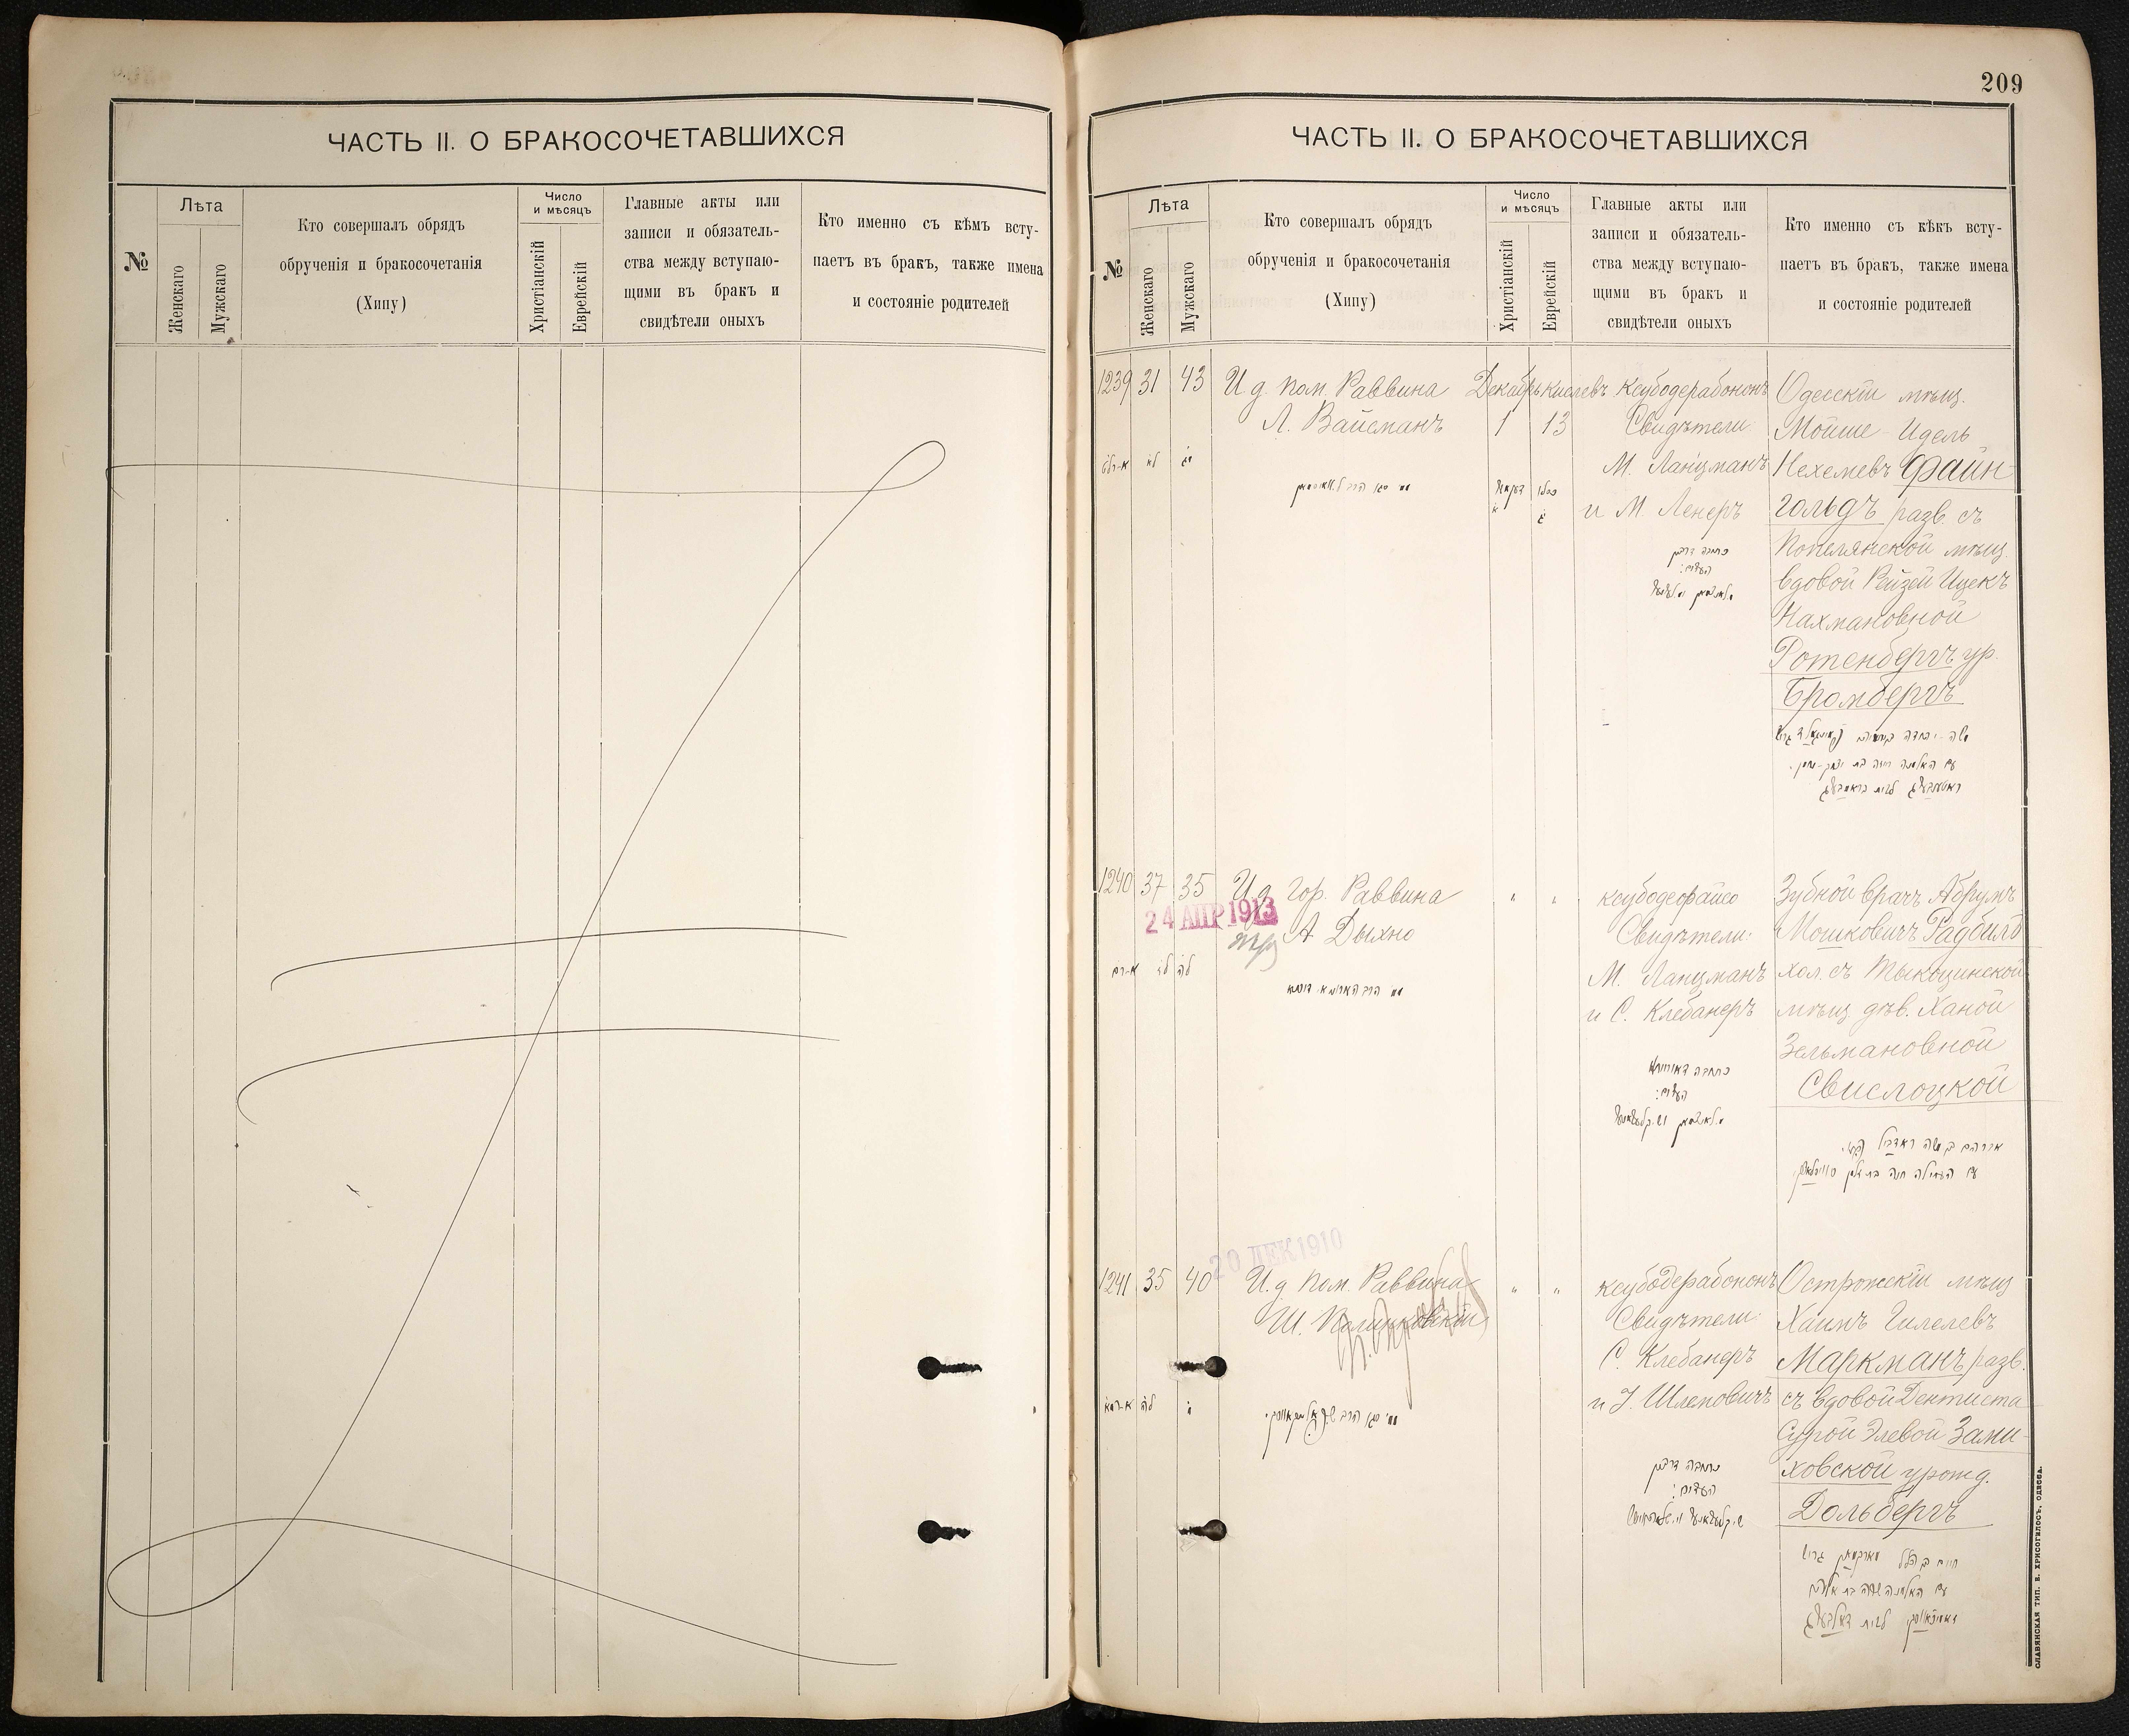 ЧАСТЬ II. О БРАКОСОЧЕТАВШИХСЯ
№
Лѣта
Женскаго
Мужскаго
Кто совершалъ обрядъ
обрученія и бракосочетанія
(Хипу)
Число
и мѣсяцъ
Христіанскій
Еврейскій
Главные акты или
записи и обязатель-
ства между вступаю-
щими въ бракъ и
свидѣтели оныхъ
Кто именно съ кѣмъ всту-
паетъ въ бракъ, также имена
и состояніе родителей
209
ЧАСТЬ II. О БРАКОСОЧЕТАВШИХСЯ
№
Лѣта
Женскаго
Мужскаго
Кто совершалъ обрядъ
обрученія и бракосочетанія
(Хипу)
Число
и мѣсяцъ
Христіанскій
Еврейскій
Главные акты или
записи и обязатель-
ства между вступаю-
щими въ бракъ и
свидѣтели оныхъ
Кто именно съ кѣкъ всту-
паетъ въ бракъ, также имена
и состояніе родителей
1239 31 43
И д пом. Раввина
Л. Вайсманъ
Декабрь Кислевъ
1 13
Кеубодерабононъ
Свидѣтели
М. Ланцманъ
и М Ленеръ
Одесскій мѣщ.
Мойше-Идель
Нехемевъ Файн-
гольдъ разв. съ
Попелянской мѣщ.
вдовой Рейзей Ицекъ
Нахмановной
Ротенбергъ ур.
Бромбергъ
כתובה דרבנן
העדים:
משה יהודה בן נחמיה
עם האלמנה רייזה בת יצחק-נחמן
1240 37 35
24 АПР 1913
И д Гор. Раввина
А Дыхно
" "
кеубодеорайсо
Свидѣтели:
М. Ланцманъ
и С. Клебанеръ
Зубной врачъ Абрумъ
Мошковичъ Радбилъ
хол. съ Тыкоцинской
мѣщ. дѣв. Ханой
Зельмановной
Свислоцкой
כתובה דאורייתא
העדים:
אברהם בן משה ראדביל
עם הבתולה חנה בת זלמן
20 ДЕК 1910
1241 35 40
И.д. пом. Раввина
Ш. Полинковскій
" "
кеубодерабононъ
Свидѣтели:
С. Клебанеръ
и І. Шлемовичъ
Острожскій мѣщ
Хаимъ Гилелевъ
Маркманъ разв.
съ вдовой Дентиста
Сурой Элевой Зами-
ховской урожд.
Дольбергъ
כתובה דרבנן
העדים:
חיים בן הלל מארקמאן גרוש
עם האלמנה שרה בת
СЛАВЯНСКАЯ ТИП. Е. ХРИСОГЕЛОСЪ, ОДЕССА.